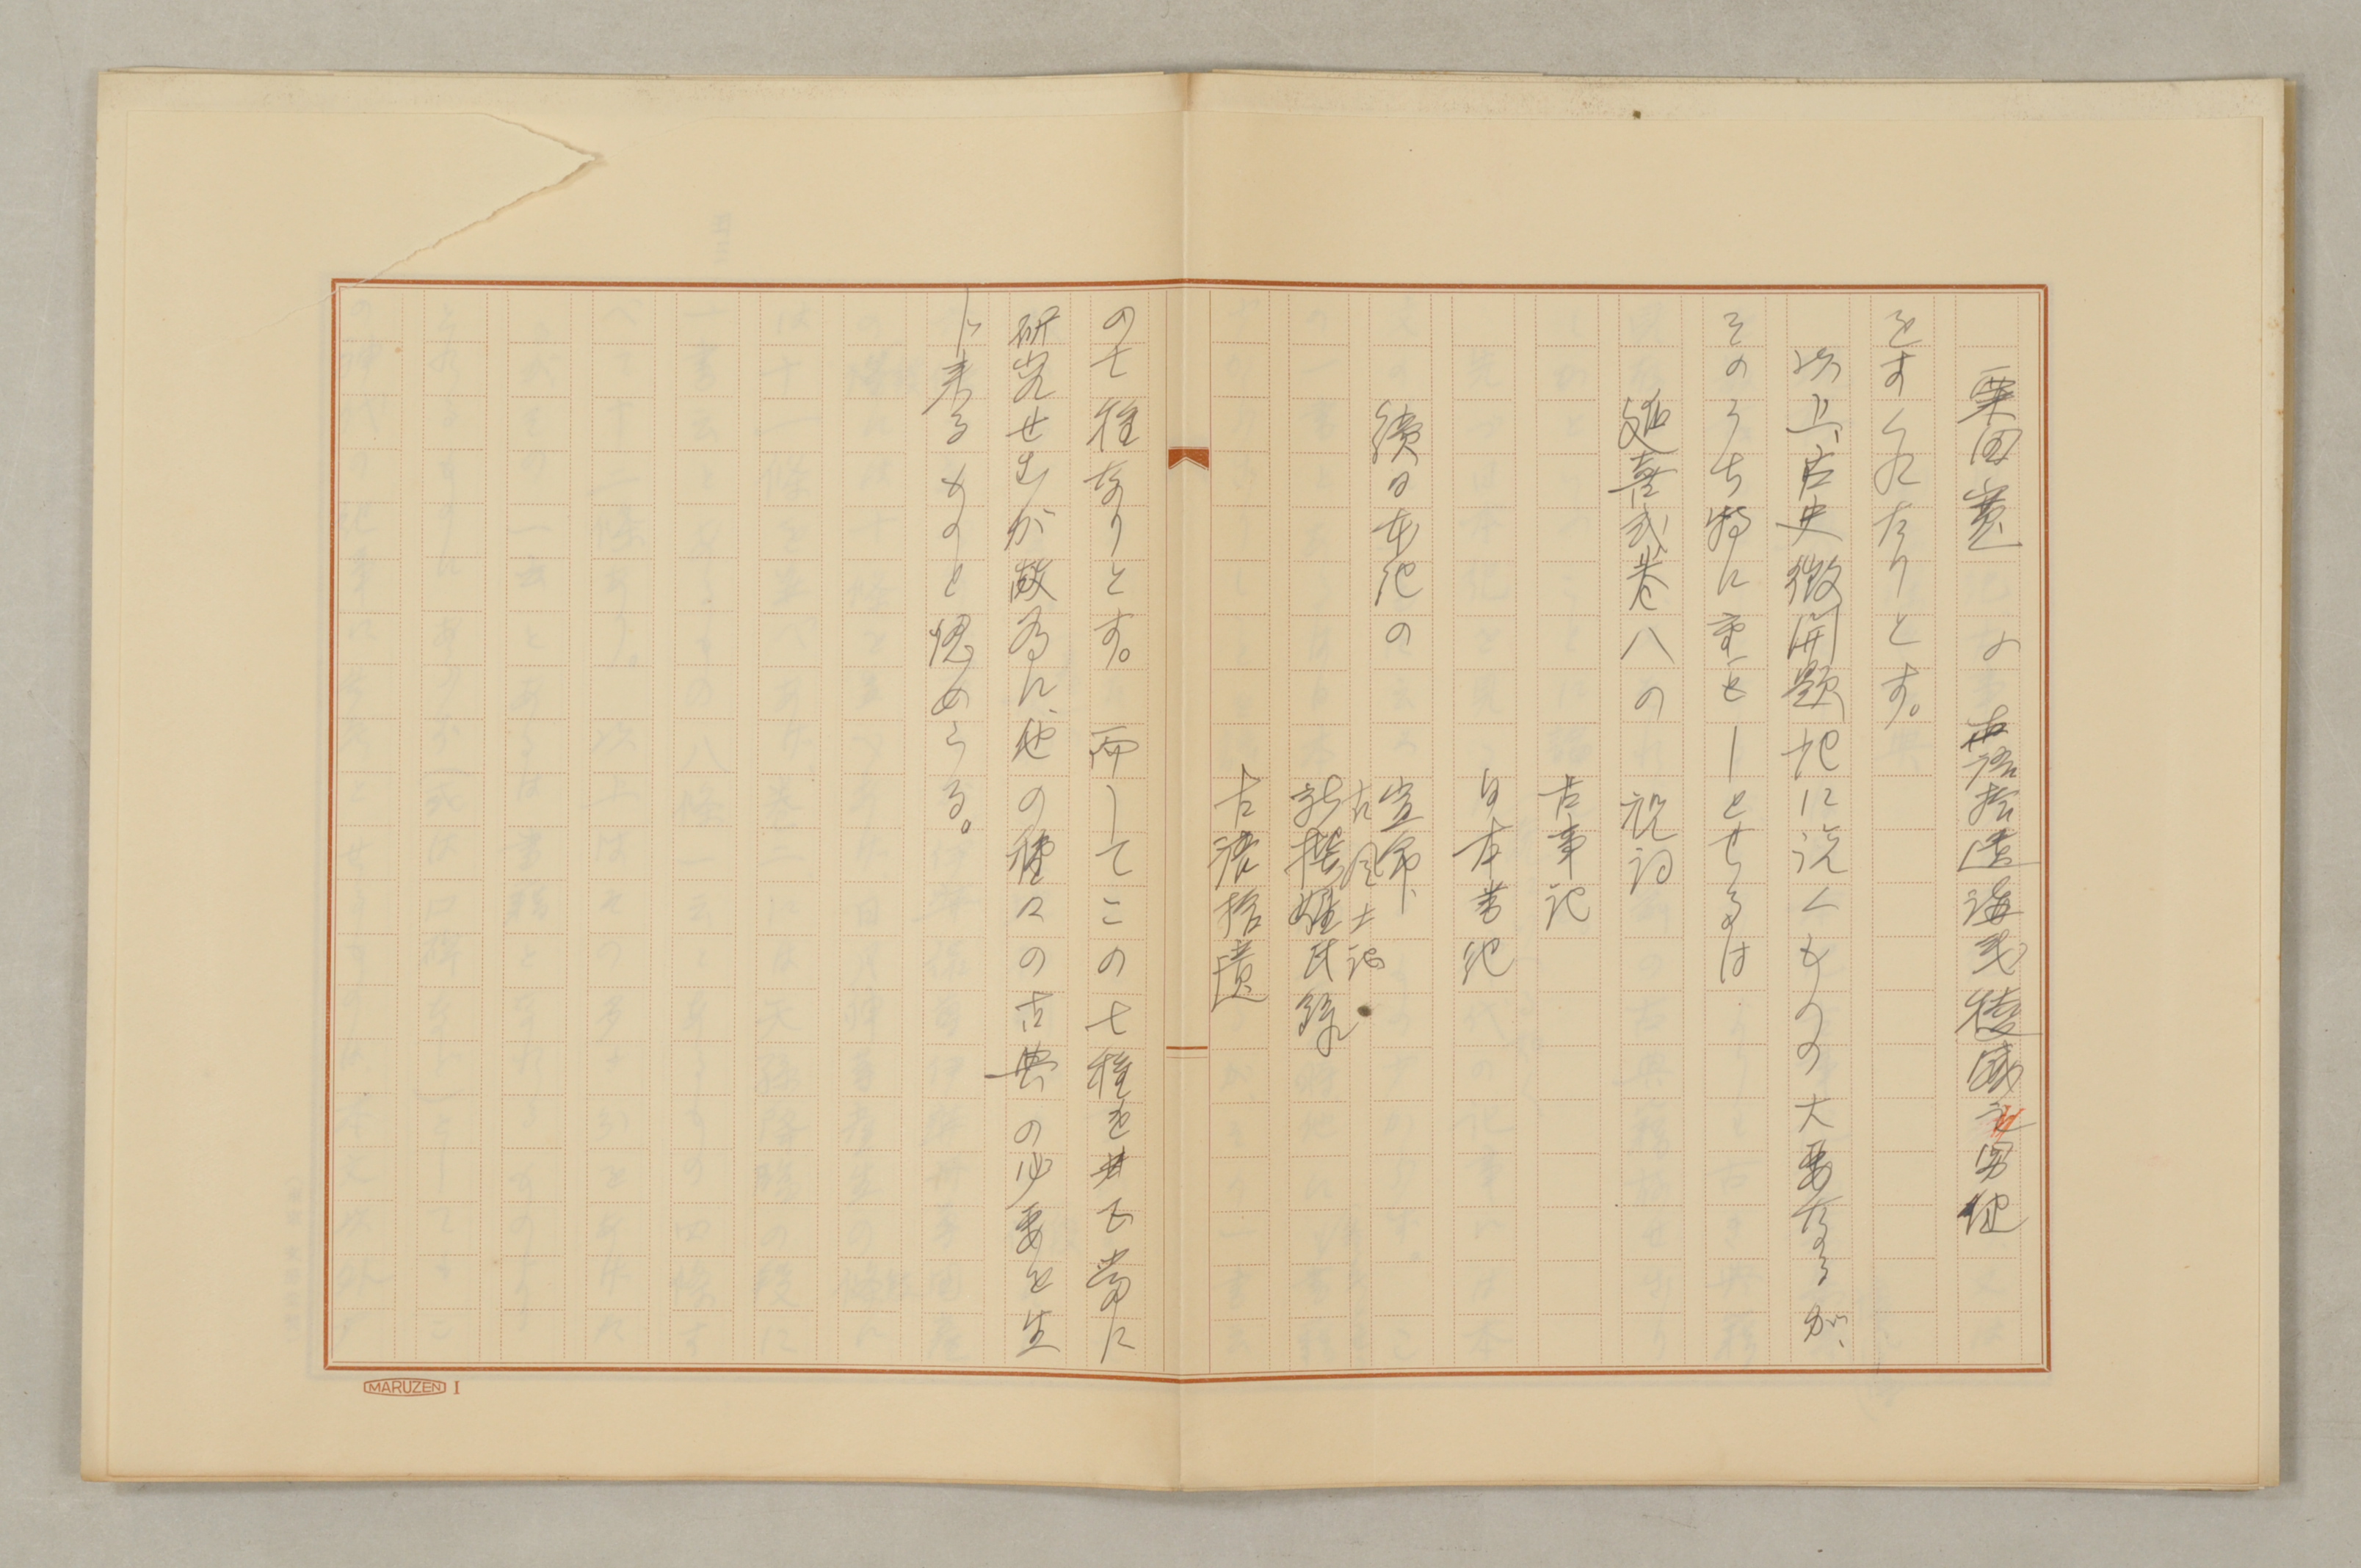 栗田寛　の　古語拾遺講義　稜威男健
をすぐれたりとす。
以上、古史徴開題記に説くものの大要なるが、
そのうち特に重としとせるは
延喜式巻八の　祝詞
古事記
日本書紀
續日本紀の　宣命
古風土記
新撰姓氏録
古語拾遺
の七種なりとす。而してこの七種を共に常に
研究せむが故為に、他の種々の古典の必要を生
じ来るものと認めらる。
MARUZEN I